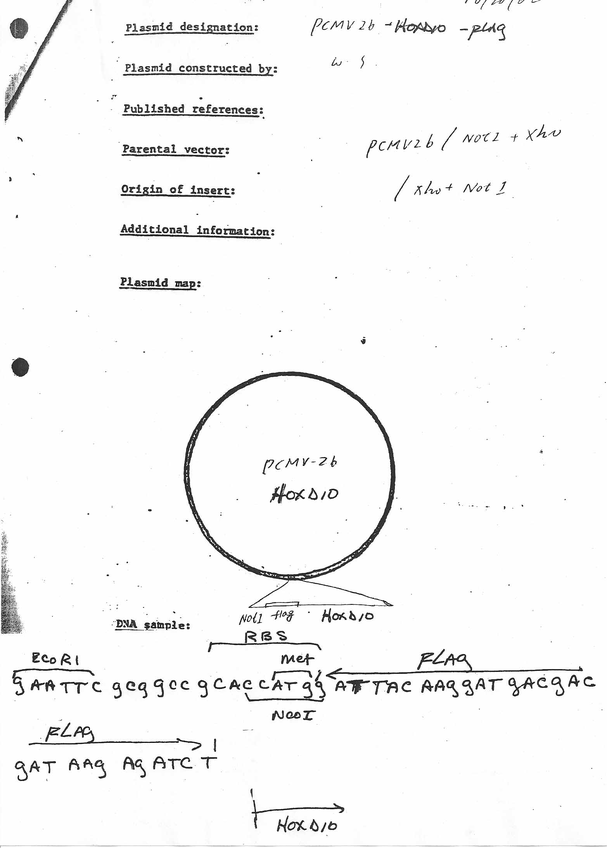 Plasmid designation: pCMV2b - HOXD10 - FLAG
Plasmid constructed by: W. S.
Published references:
Parental vector: pCMV2b / NOT1 + Xho
Origin of insert: / Xho + Not I
Additional information:
Plasmid map:
pCMV-2b
HOXD10
Not1 flag HOXD10
DNA sample:
RBS
EcoR1 Met FLAG
gAATTC gcggcc gCACCATgg ATTAC AAggAT gACgAC
NcoI
FLAg
gAT AAg Ag ATC T
HOXD10